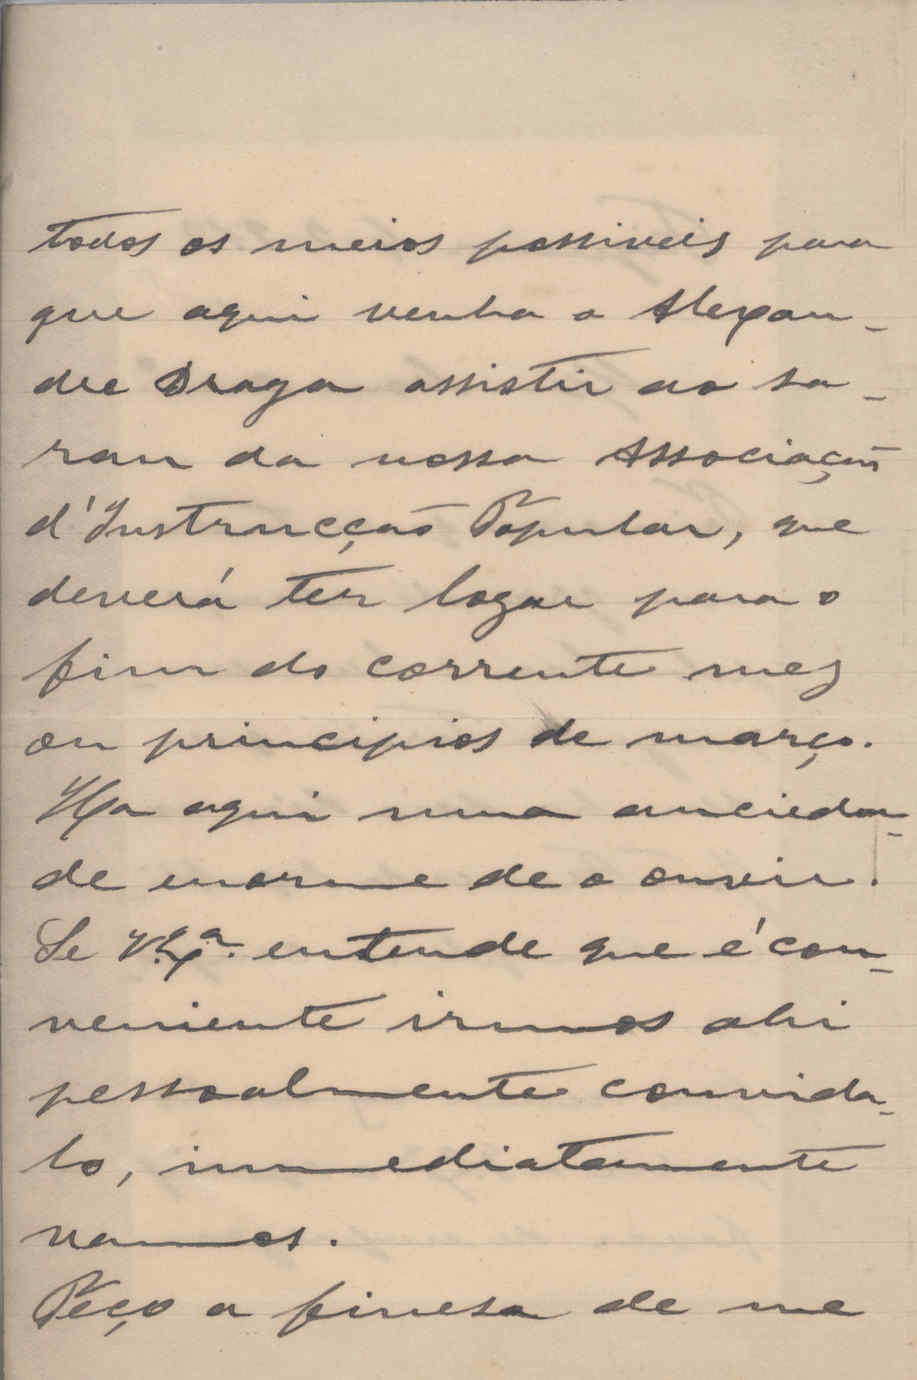 todos os meios possiveis para
que aqui venha o Alexan-
dre Braga assistir ao sa-
rau da nossa Associação
d'Instrucção Popular, que
deverá ter logar para o
fim do corrente mez
ou principios de março.
Ha aqui uma ancieda-
de enorme de o ouvir.
Se V. Ex.ª entende que é con-
veniente irmos ahi
pessoalmente convida-
lo, immediatamente
vamos.
Peço a finesa de me